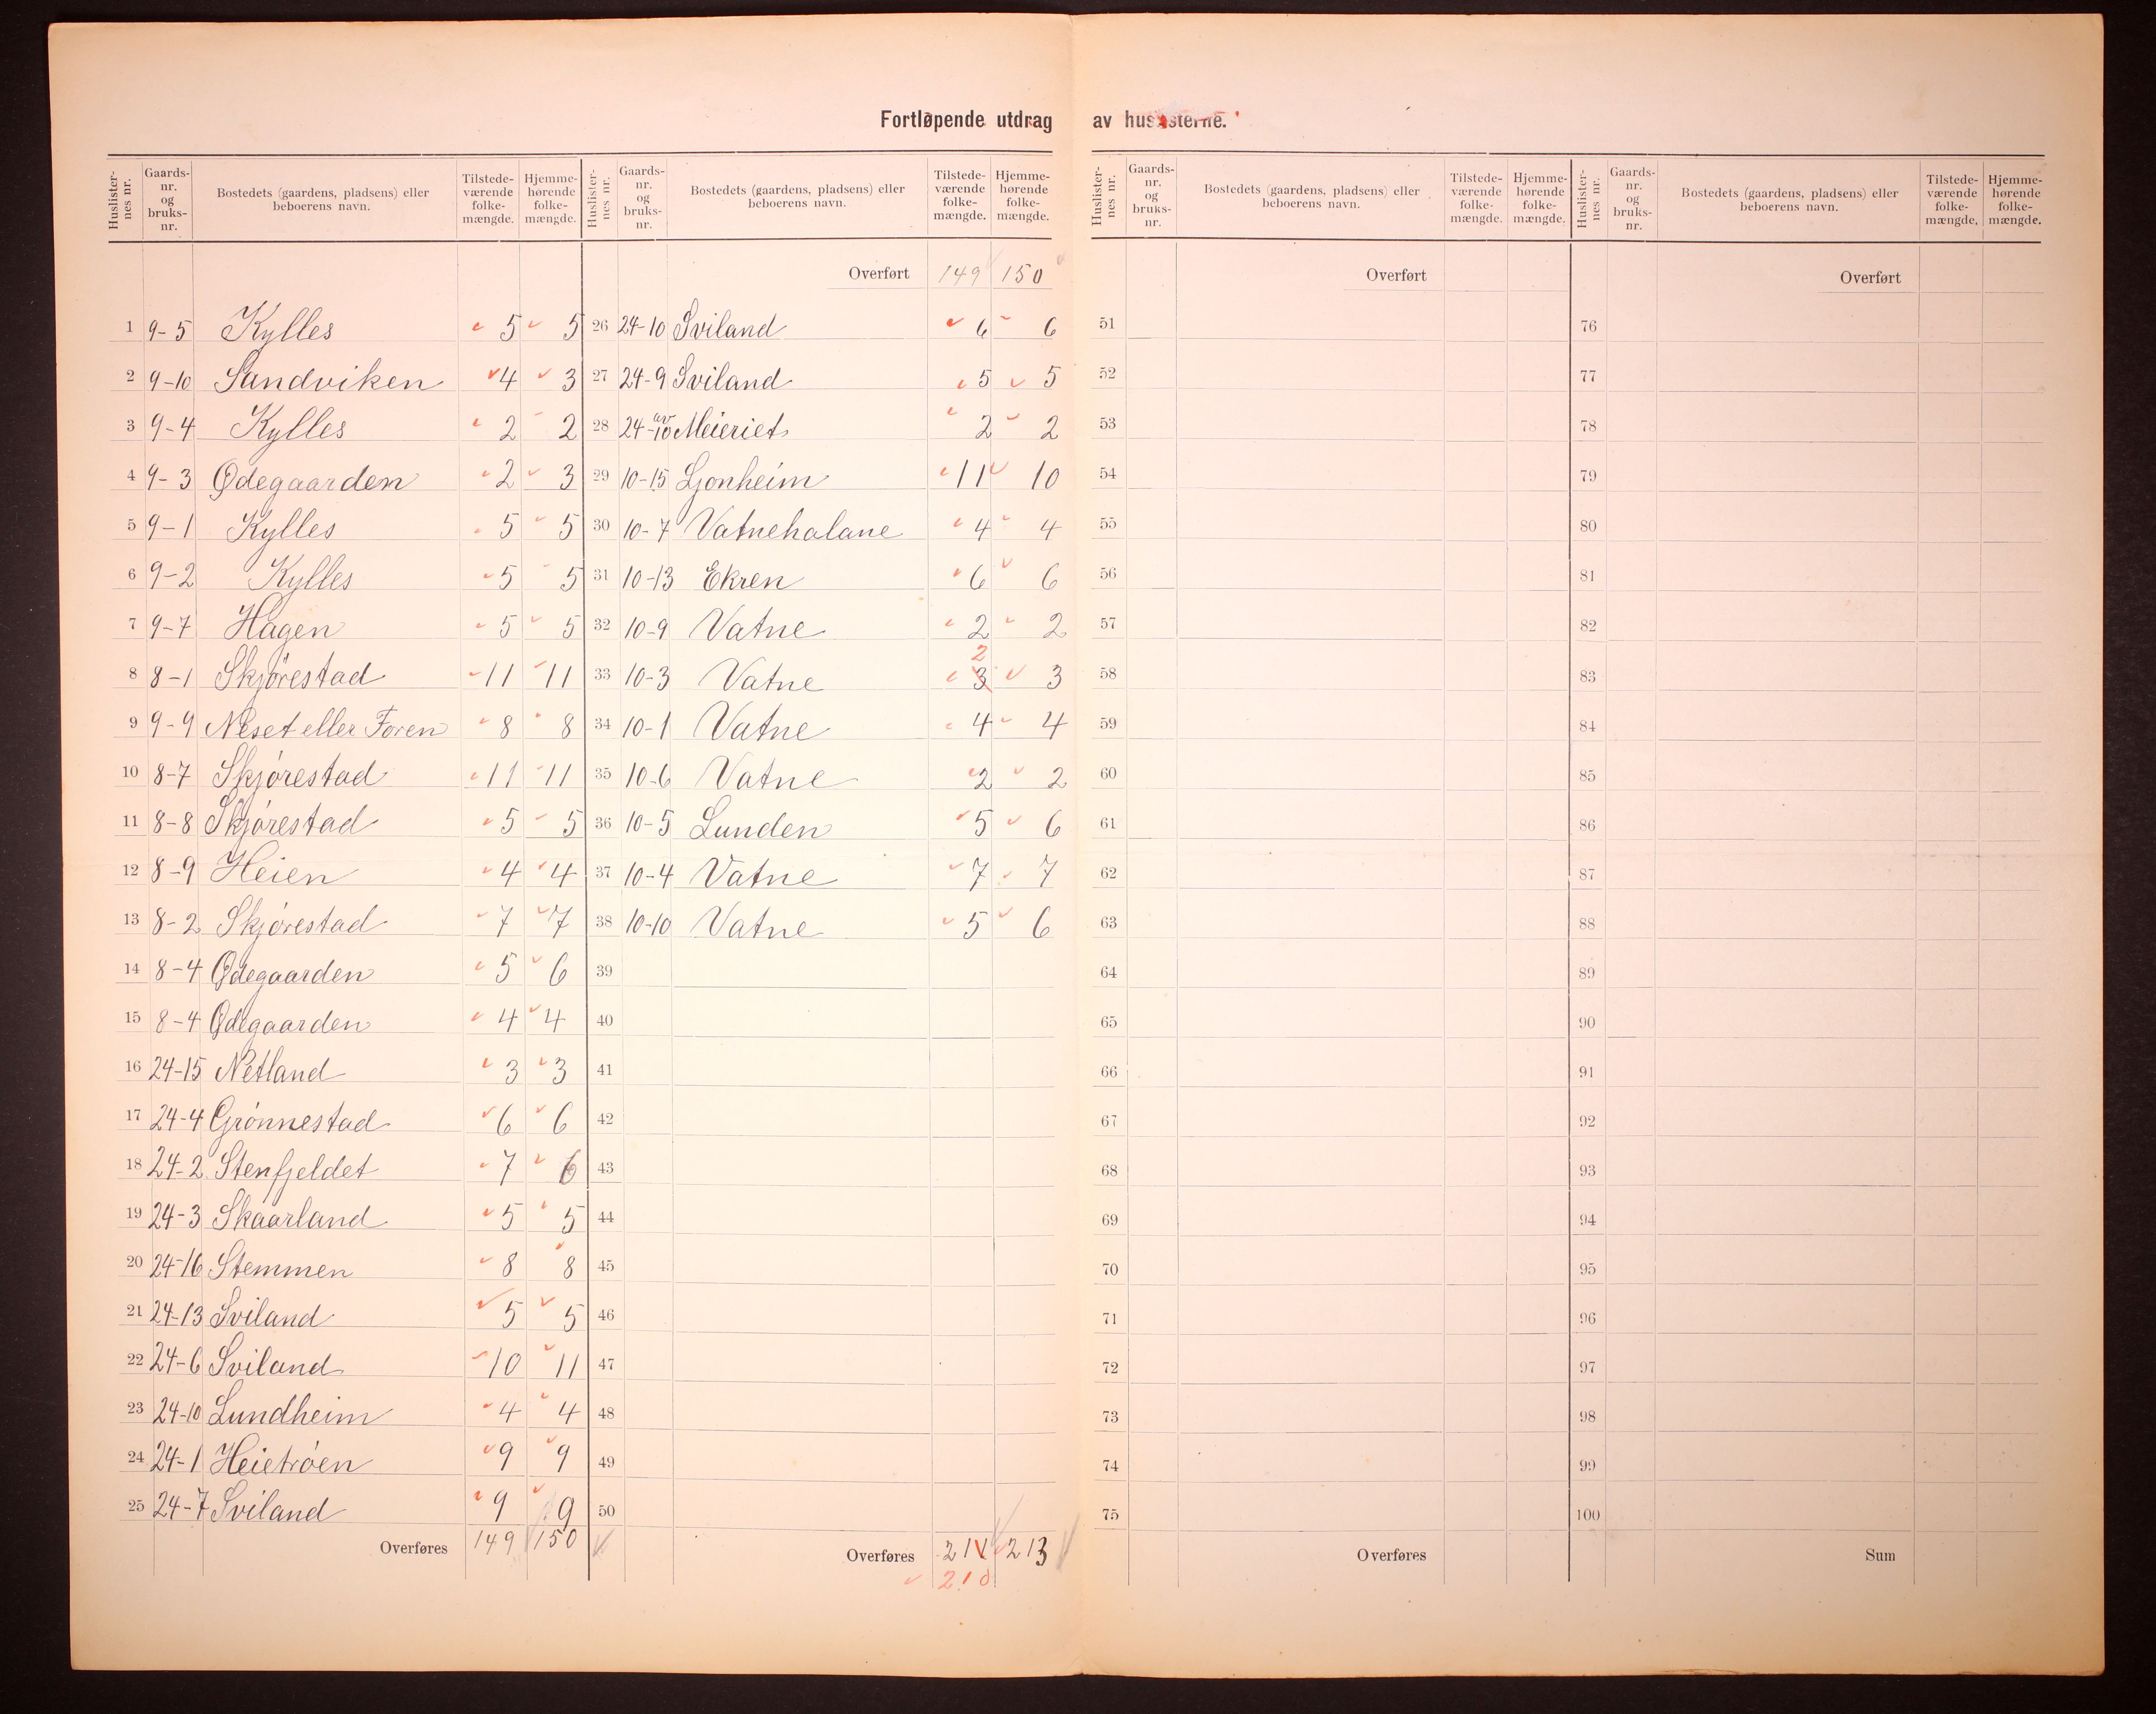 Fortløpende utdrag av huslisterne.
Huslister-nes nr. | Gaards-nr. og bruks-nr. | Bostedets (gaardens, pladsens) eller beboerens navn. | Tilstede-værende folke-mængde. | Hjemme-hørende folke-mængde.
1 9-5 Kylles 5 5
2 9-10 Sandviken 4 3
3 9-4 Kylles 2 2
4 9-3 Ødegaarden 2 3
5 9-1 Kylles 5 5
6 9-2 Kylles 5 5
7 9-7 Hagen 5 5
8 8-1 Skjørestad 11 11
9 9-9 Neset eller Foren 8 8
10 8-7 Skjørestad 11 11
11 8-8 Skjørestad 5 5
12 8-9 Heien 4 4
13 8-2 Skjørestad 7 7
14 8-4 Ødegaarden 5 6
15 8-4 Ødegaarden 4 4
16 24-15 Netland 3 3
17 24-4 Grönnestad 6 6
18 24-2 Stenfjeldet 7 6
19 24-3 Skaarland 5 5
20 24-16 Stemmen 8 8
21 24-13 Sviland 5 5
22 24-6 Sviland 10 11
23 24-10 Lundheim 4 4
24 24-1 Heietröen 9 9
25 24-7 Sviland 9 9
Overføres 149 150
Huslister-nes nr. | Gaards-nr. og bruks-nr. | Bostedets (gaardens, pladsens) eller beboerens navn. | Tilstede-værende folke-mængde. | Hjemme-hørende folke-mængde.
Overført 149 150
26 24-10 Sviland 6 6
27 24-9 Sviland 5 5
28 24-av 10 Meieriet 2 2
29 10-15 Ljonheim 11 10
30 10-7 Vatnehalane 4 4
31 10-13 Ekren 6 6
32 10-9 Vatne 2 2
2
33 10-3 Vatne 3 3
34 10-1 Vatne 4 4
35 10-6 Vatne 2 2
36 10-5 Lunden 5 6
37 10-4 Vatne 7 7
38 10-10 Vatne 5 6
39
40
41
42
43
44
45
46
47
48
49
50
Overføres 211 213
210
Huslister-nes nr. | Gaards-nr. og bruks-nr. | Bostedets (gaardens, pladsens) eller beboerens navn. | Tilstede-værende folke-mængde. | Hjemme-hørende folke-mængde.
Overført
51
52
53
54
55
56
57
58
59
60
61
62
63
64
65
66
67
68
69
70
71
72
73
74
75
Overføres
Huslister-nes nr. | Gaards-nr. og bruks-nr. | Bostedets (gaardens, pladsens) eller beboerens navn. | Tilstede-værende folke-mængde, | Hjemme-hørende folke-mængde.
Overført
76
77
78
79
80
81
82
83
84
85
86
87
88
89
90
91
92
93
94
95
96
97
98
99
100
Sum